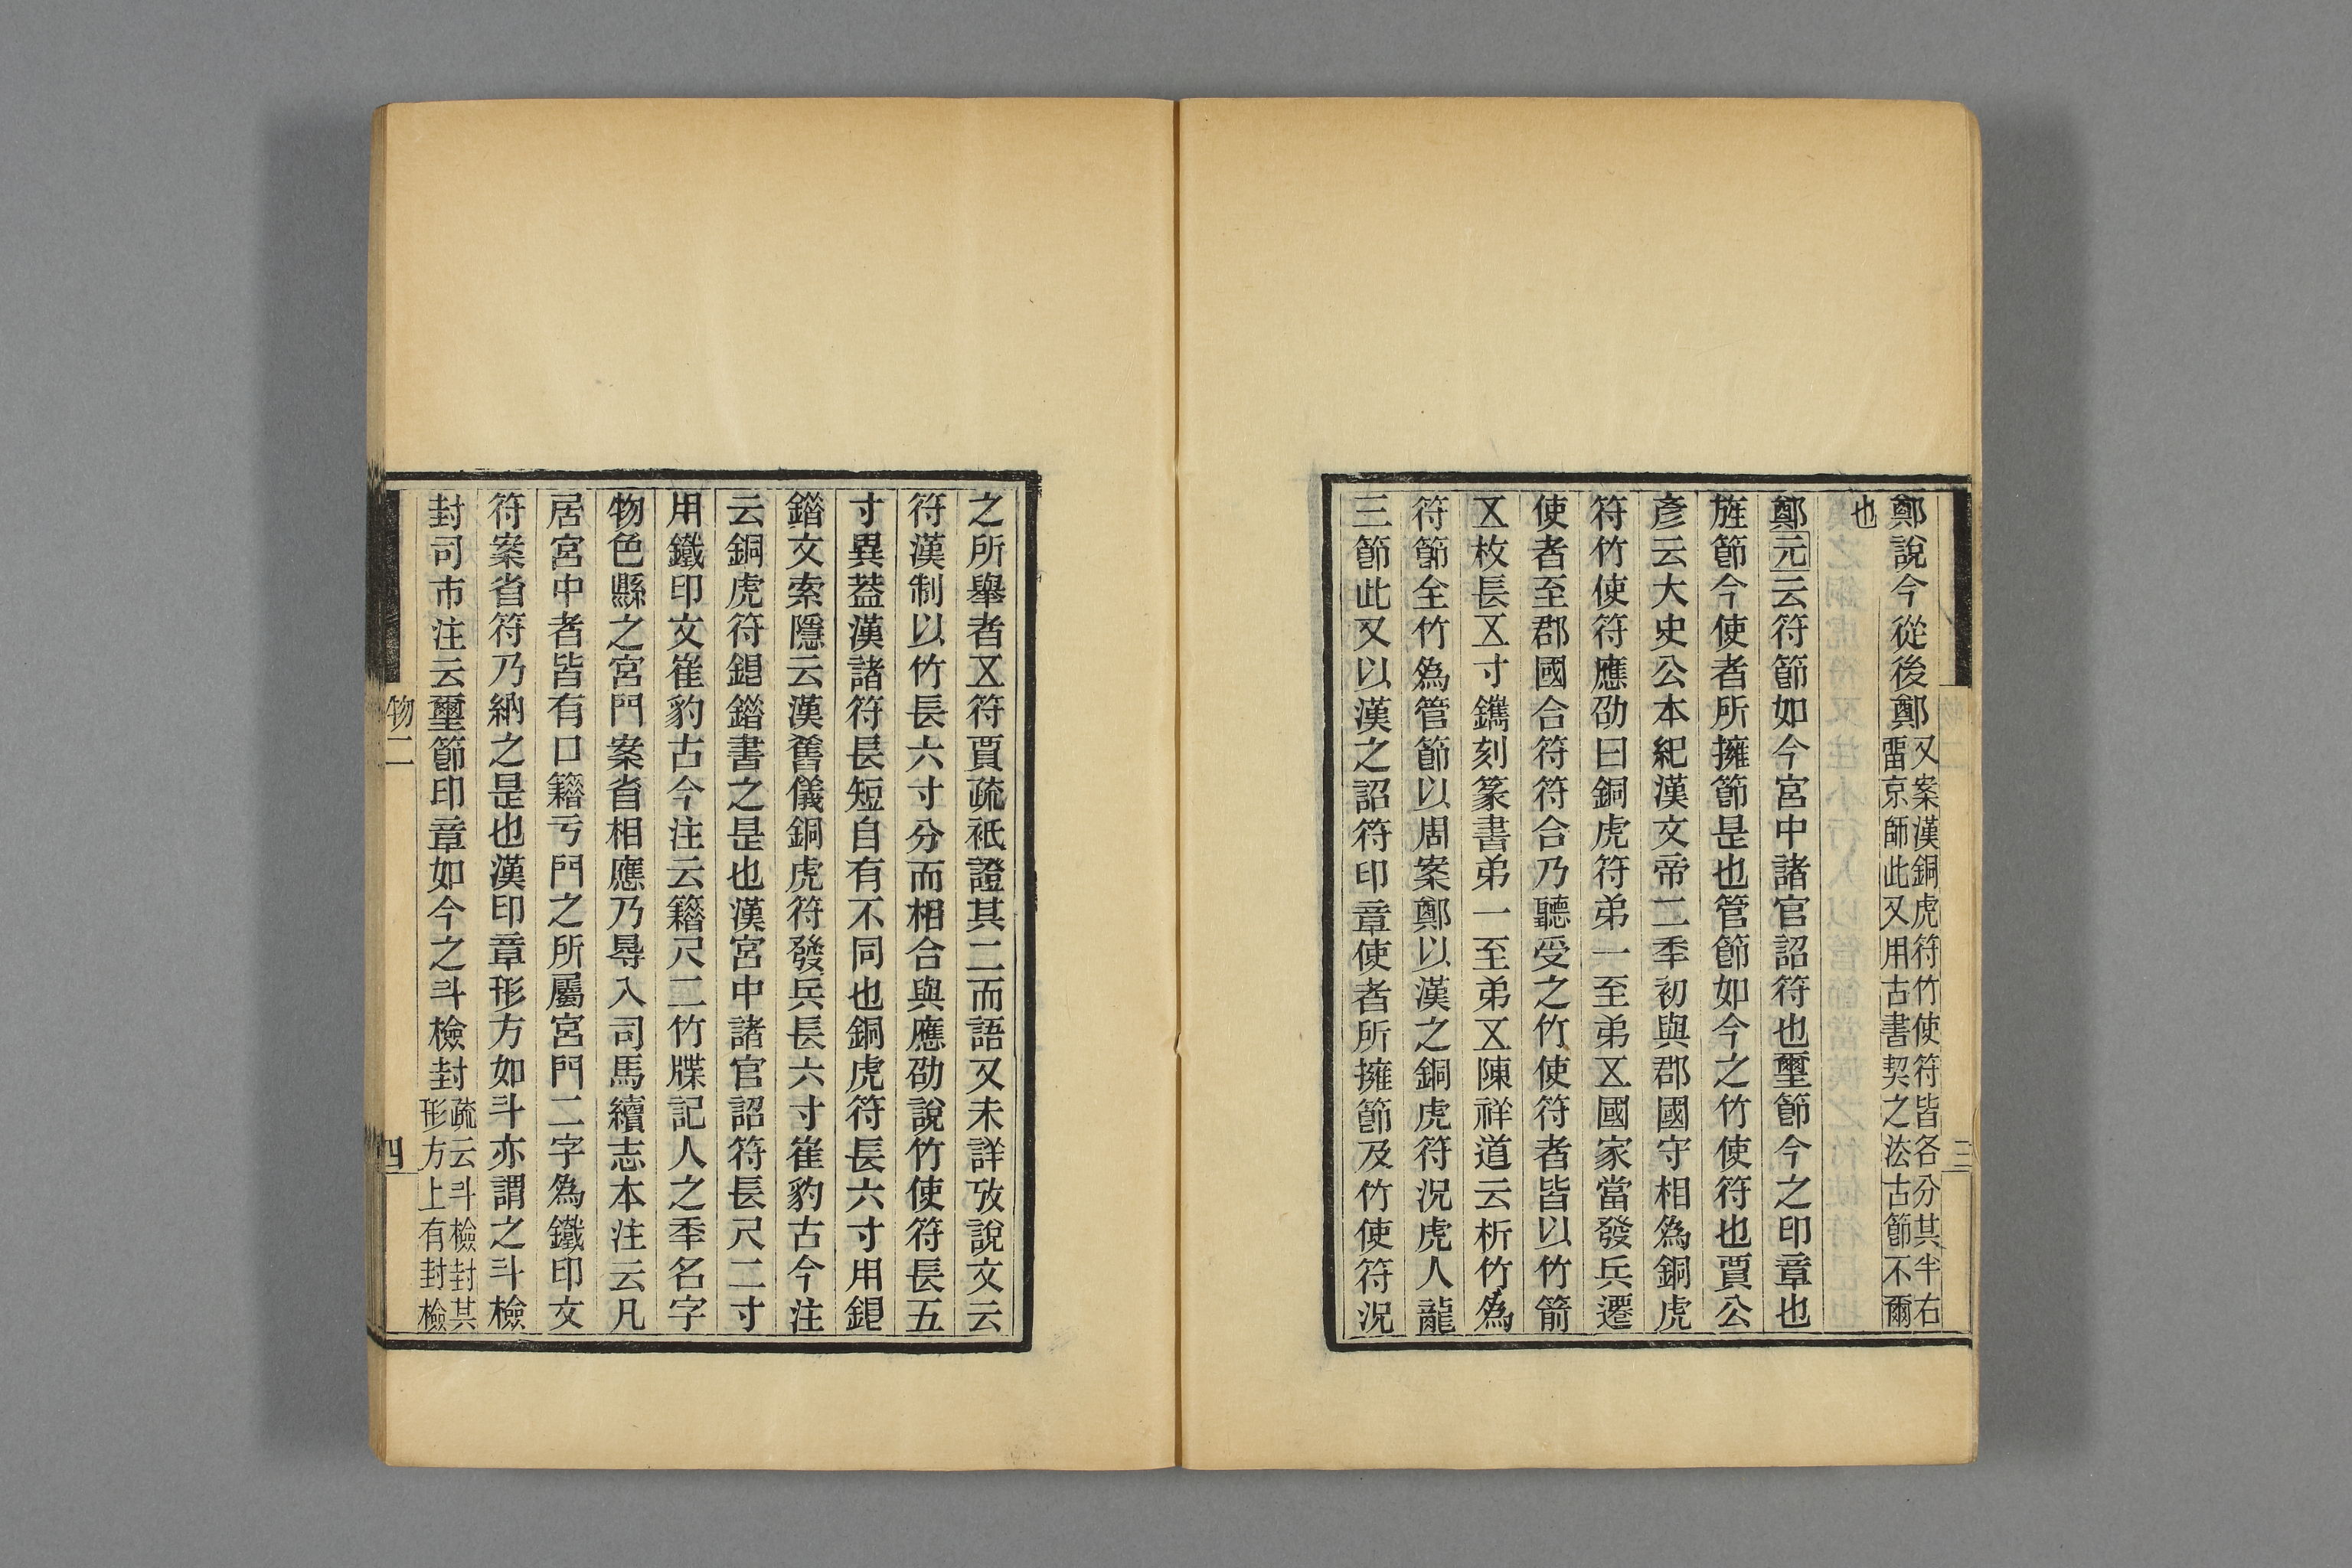 鄭說今從後鄭又案漢銅虎符竹使符皆各分其半右畱京師此又用古書契之法古節不爾
也
鄭元云符節如今宮中諸官詔符也璽節今之印章也
旌節今使者所擁節是也管節如今之竹使符也賈公
彥云大史公本紀漢文帝二季初與郡國守相爲銅虎
符竹使符應劭曰銅虎符弟一至弟㐅國家當發兵遷
使者至郡國合符符合乃聽受之竹使符者皆以竹箭
㐅枚長㐅寸鐫刻篆書弟一至弟㐅陳祥道云析竹爲
符節全竹爲管節以周案鄭以漢之銅虎符況虎人龍
三節此又以漢之詔符印章使者所擁節及竹使符況
之所舉者㐅符賈疏衹證其二而語又未詳攷說文云
符漢制以竹長六寸分而相合與應劭說竹使符長五
寸異葢漢諸符長短自有不同也銅虎符長六寸用銀
錯文索隱云漢舊儀銅虎符發兵長六寸崔豹古今注
云銅虎符銀錯書之是也漢宮中諸官詔符長尺二寸
用鐵印文崔豹古今注云籍尺二竹牒記人之季名字
物色縣之宮門案省相應乃㝵入司馬續志本注云凡
居宮中者皆有口籍亏門之所屬宮門二字爲鐵印文
符案省符乃納之是也漢印章形方如斗亦謂之斗檢
封司市注云璽節印章如今之斗檢封疏云斗檢封其形方上有封檢
物二
四
三